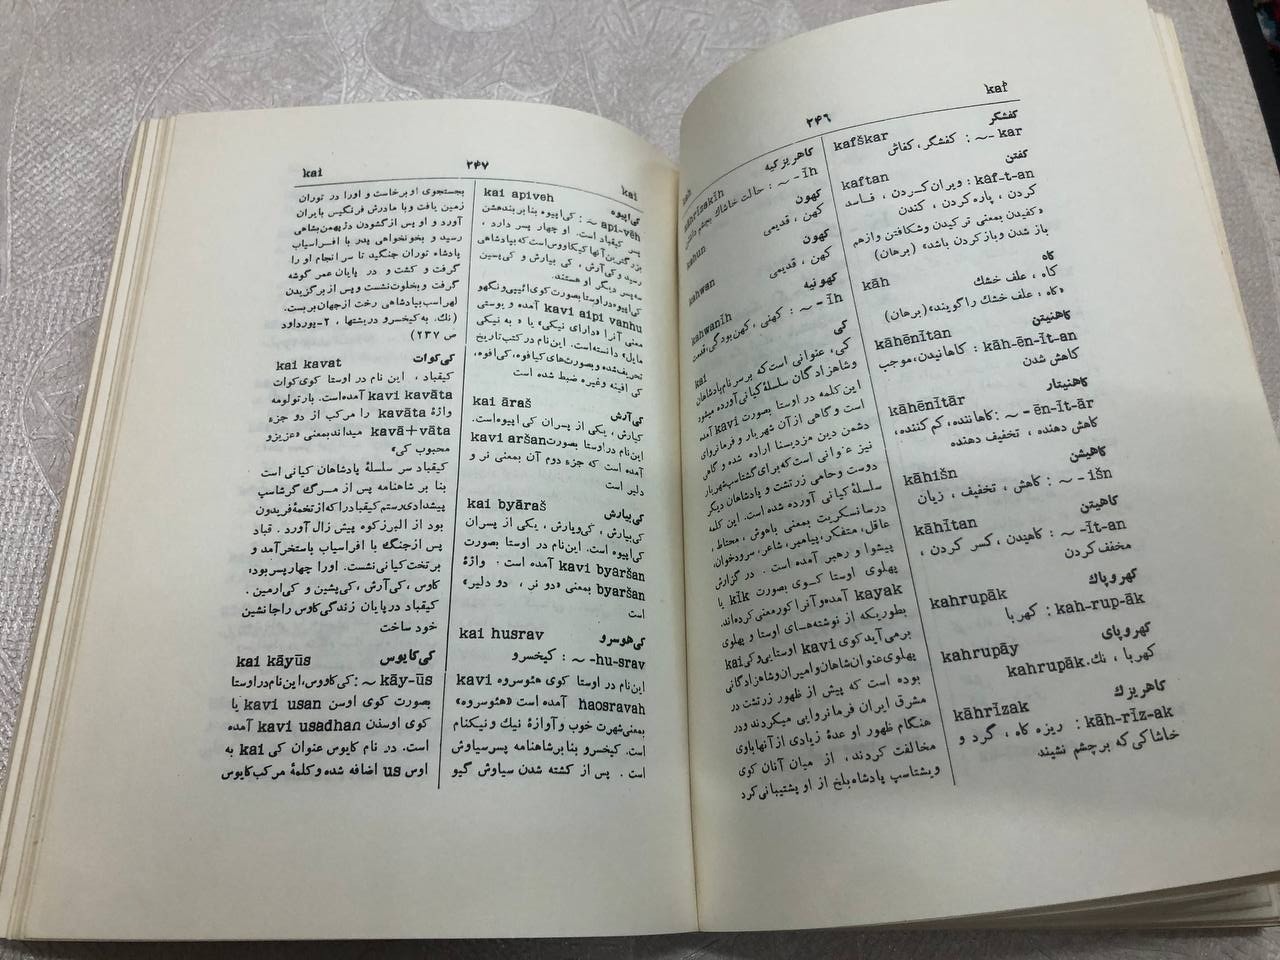 kaf
۲۴۶
kafškar کفشگر
kar -~ : کفشگر ، کفاش
kaftan کفتن
kaf-t-an : ویران کردن ، فاسد
کردن ، پاره کردن ، کندن
«کفیدن بمعنی ترکیدن وشکافتن وازهم
باز شدن وباز کردن باشد» (برهان)
kāh کاه
کاه ، علف خشك
«کاه ، علف خشك را گویند» (برهان)
kāhēnītan کاهنیتن
kāh-ēn-īt-an : کاهانیدن، موجب
کاهش شدن
kāhēnītār کاهنیتار
ēn-īt-ār -~ : کاهاننده، کم کننده،
کاهش دهنده ، تخفیف دهنده
kāhišn کاهیشن
išn -~ : کاهش ، تخفیف ، زیان
kāhītan کاهیتن
īt-an -~ : کاهیدن ، کسر کردن ،
مخفف کردن
kahrupāk کهروپاك
kah-rup-āk : کهربا
kahrupāy کهروپای
کهربا ، نك. kahrupāk
kāhrīzak کاهریزك
kāh-rīz-ak : ریزه کاه ، گرد و
خاشاکی که بر چشم نشیند
kāhrīzakīh کاهریزکیه
īh -~ : حالت خاشاك بچشم داشتن
kahun کهون
کهن ، قدیمی
kahwan کهون
کهن ، قدیمی
kahwanīh کهونیه
īh -~ : کهنی ، کهن بودگی، قدمت
kai کی
کی، عنوانی است که بر سر نام پادشاهان
وشاهزادگان سلسلهٔ کیانی آورده میشود
این کلمه در اوستا بصورت kavi آمده
است و گاهی از آن شهریار و فرمانروای
دشمن دین مزدیسنا اراده شده و گاهی
نیز عنوانی است که برای گشتاسپ شهریار
دوست وحامی زرتشت و پادشاهان دیگر
سلسلهٔ کیانی آورده شده است. این کلمه
درسانسکریت بمعنی باهوش ، محتاط ،
عاقل، متفکر، پیامبر، شاعر، سرودخوان،
پیشوا و رهبر آمده است . در گزارش
پهلوی اوستا کوی بصورت kīk یا
kayak آمده وآنرا کورمعنی کرده‌اند.
بطوریکه از نوشته‌های اوستا و پهلوی
برمی‌آید کوی kavi اوستایی و کی kai
پهلوی عنوان شاهان وامیران وشاهزادگانی
بوده است که پیش از ظهور زرتشت در
مشرق ایران فرمانروایی میکردند ودر
هنگام ظهور او عدهٔ زیادی از آنها باوی
مخالفت کردند، از میان آنان کوی
ویشتاسپ پادشاه بلخ از او پشتیبانی کرد
kai
۲۴۷
kai
kai apiveh کی اپیوه
api-vēh ~ : کی اپیوه بنا بر بندهشن
پسر کیقباد است. او چهار پسر دارد ،
بزرگترین آنها کیکاووس است که بپادشاهی
رسید و کی‌آرش ، کی بیارش و کی‌پسین
سه پسر دیگر او هستند.
کی اپیوه در اوستا بصورت کوی ائیپی ونگهو
kavi aipi vanhu آمده و یوستی
معنی آنرا «دارای نیکی» یا « به نیکی
مایل» دانسته است. این نام در کتب تاریخ
تحریف شده و بصورت‌های کیافوه، کی‌افوه،
کی افینه وغیره ضبط شده است
kai āraš کی آرش
کیارش ، یکی از پسران کی اپیوه است.
این نام در اوستا بصورت kavi aršan
آمده است که جزء دوم آن بمعنی نر و
دلیر است
kai byāraš کی بیارش
کی‌بیارش ، کی‌ویارش ، یکی از پسران
کی اپیوه است. این نام در اوستا بصورت
kavi byaršan آمده است . واژهٔ
byaršan بمعنی «دو نر ، دو دلیر»
است
kai husrav کی هوسرو
hu-srav -~ : کیخسرو
این نام در اوستا کوی هئوسروه kavi
haosravah آمده است «هئوسروه»
بمعنی شهرت خوب و آوازهٔ نیك و نیکنام
است. کیخسرو بنا بر شاهنامه پسر سیاوش
است . پس از کشته شدن سیاوش گیو
بجستجوی او برخاست و اورا در توران
زمین یافت و با مادرش فرنگیس بایران
آورد و او پس از گشودن دژ بهمن بشاهی
رسید و بخونخواهی پدر با افراسیاب
پادشاه توران جنگید تا سرانجام او را
گرفت و کشت و در پایان عمر گوشه
گرفت و بخلوت نشست و پس از برگزیدن
لهراسب بپادشاهی رخت از جهان بربست.
(نك. به کیخسرو دریشتها ، ۲-پورداود
ص ۲۳۷)
kai kavat کی کوات
کیقباد ، این نام در اوستا کوی کوات
kavi kavāta آمده است. بارتولومه
واژهٔ kavāta را مرکب از دو جزء
kavā+vāta میداند بمعنی «عزیز و
محبوب کی»
کیقباد سر سلسلهٔ پادشاهان کیانی است
بنا بر شاهنامه پس از مرگ گرشاسپ
پیشدادی رستم کیقباد را که از تخمهٔ فریدون
بود از البرز کوه پیش زال آورد . قباد
پس از جنگ با افراسیاب باستخر آمد و
بر تخت کیانی نشست. اورا چهار پسر بود،
کاوس ، کی‌آرش ، کی‌پشین و کی‌ارمین .
کیقباد در پایان زندگی کاوس را جانشین
خود ساخت
kai kāyūs کی کایوس
kāy-ūs ~ : کی کاووس، این نام در اوستا
بصورت کوی اوسن kavi usan یا
کوی اوسذن kavi usadhan آمده
است. در نام کایوس عنوان کی kai به
اوس us اضافه شده و کلمهٔ مرکب کایوس